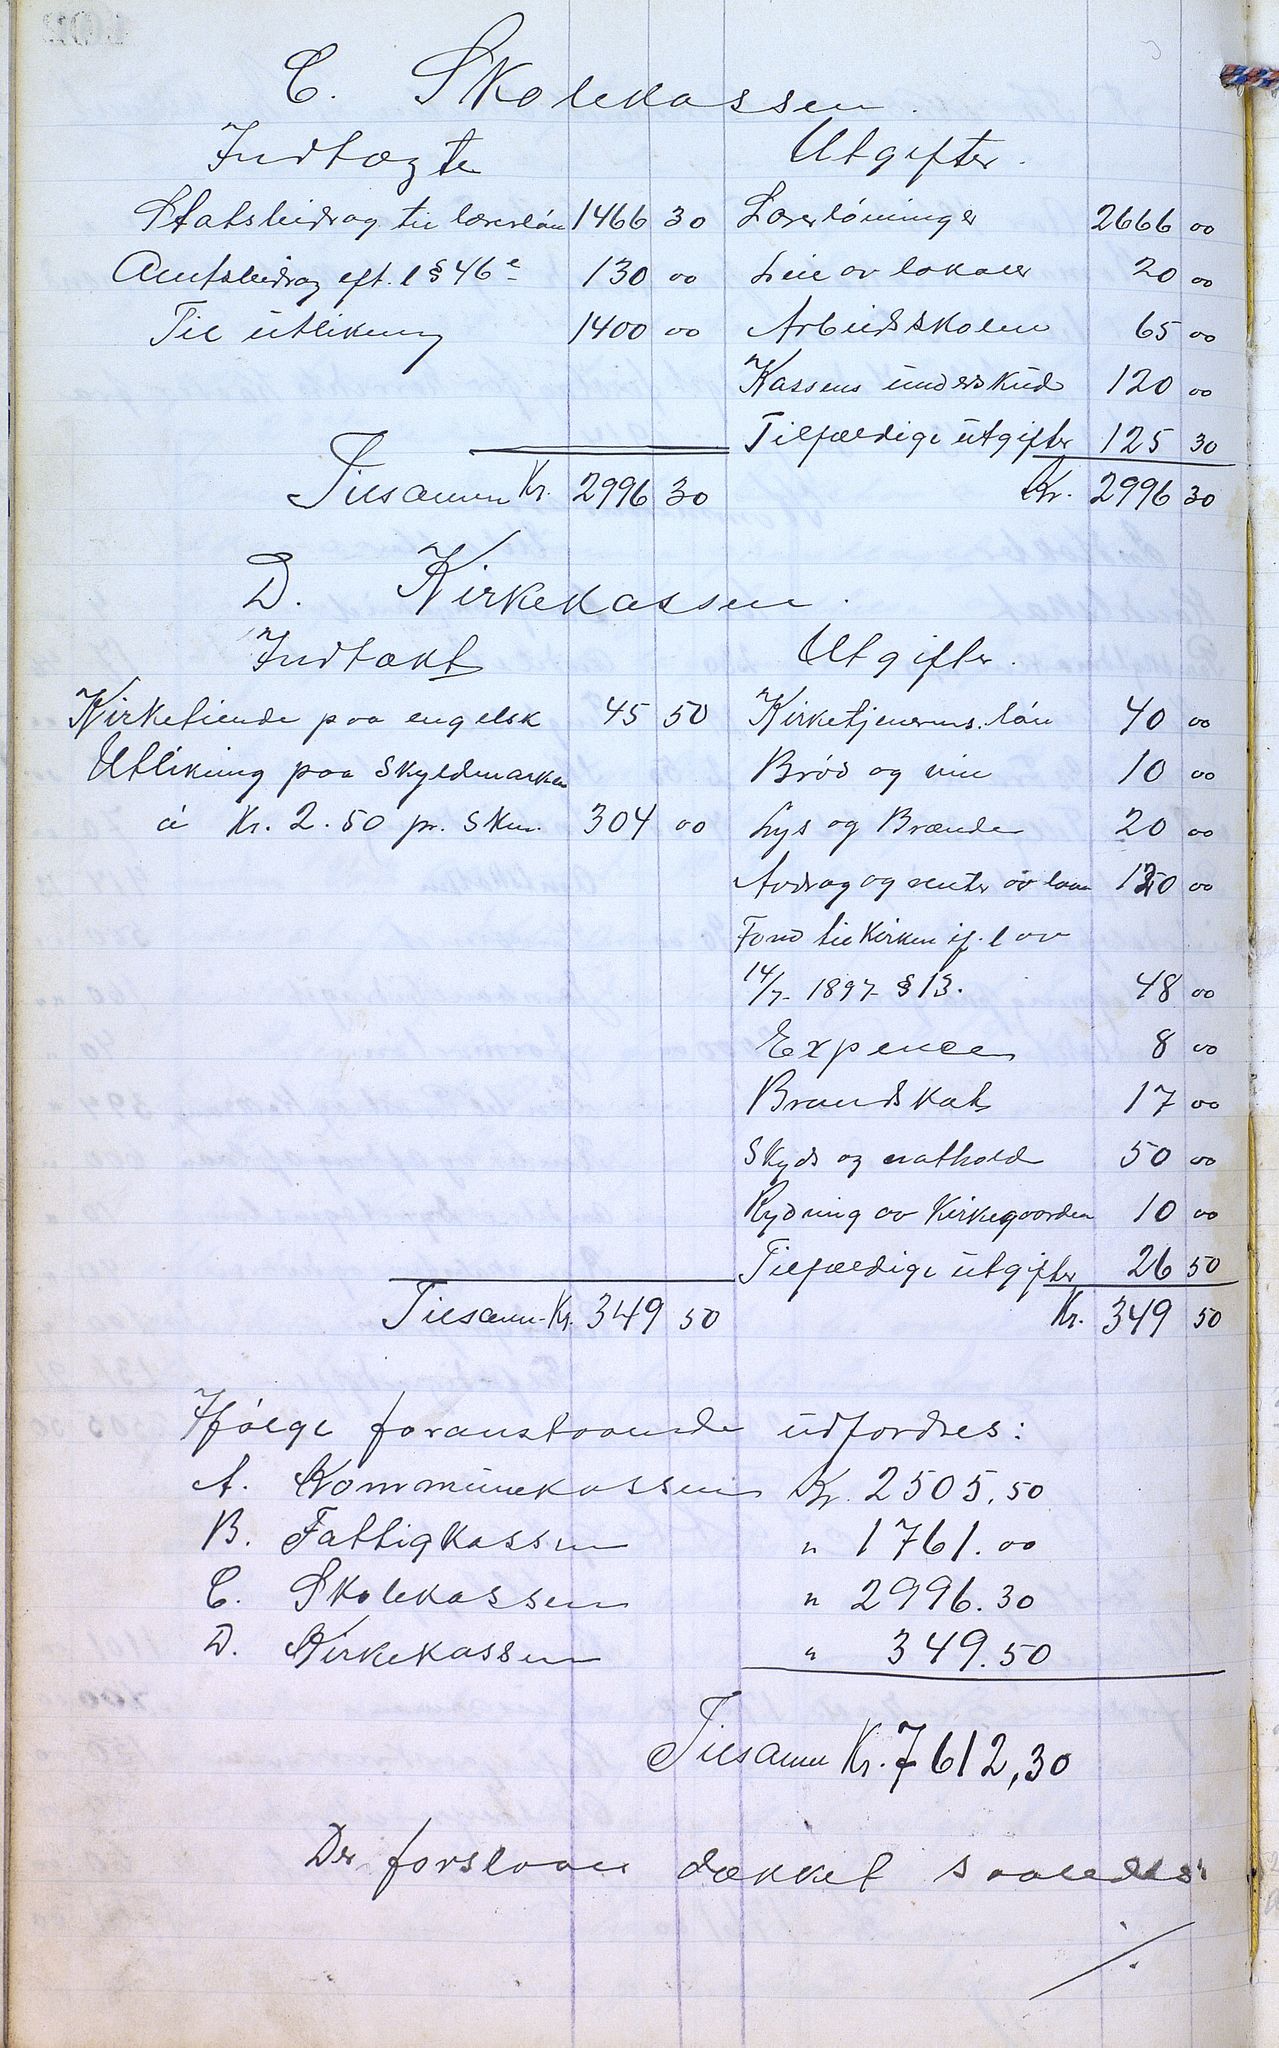 C. Skolekassen.
Indtægte Utgifter.
Statsbidrag til lærerløn 1466 30 Lærerlønninger 2666 00
Amtsbidrag eft. l § 46 e 130 00 Leie av lokaler 20 00
Til utlikning 1400 00 Arbeidsskolen 65 00
Kassens underskud 120 00
Tilfældige utgifter 125 30
Tilsamm Kr. 2996 30 Kr. 2996 30
D. Kirkekassen.
Indtækt Utgifter.
Kirketiende paa engelsk 45 50 Kirketjenerens løn 40 00
Utlikning paa Skyldmarken Brød og vin 10 00
á Kr. 2.50 pr. Skm. 304 00 Lys og Brænde 20 00
Avdrag og renter av laan 120 00
Fond til Kirken if. lov
14/7 1897 § 13. 48 00
Expencer 8 00
Brandskat 17 00
Skyds og nathold 50 00
Rydning av Kirkegaarden 10 00
Tilfældige utgifter 26 50
Tilsamm. Kr. 349 50 Kr. 349 50
Ifølge foranstaaende udfordres:
A. Kommunekassen Kr. 2505.50
B. Fattigkassen " 1761.00
C. Skolekassen " 2996.30
D. Kirkekassen " 349.50
Tilsamm Kr. 7612,30
Der forslaaes dækket saaledes:
/.